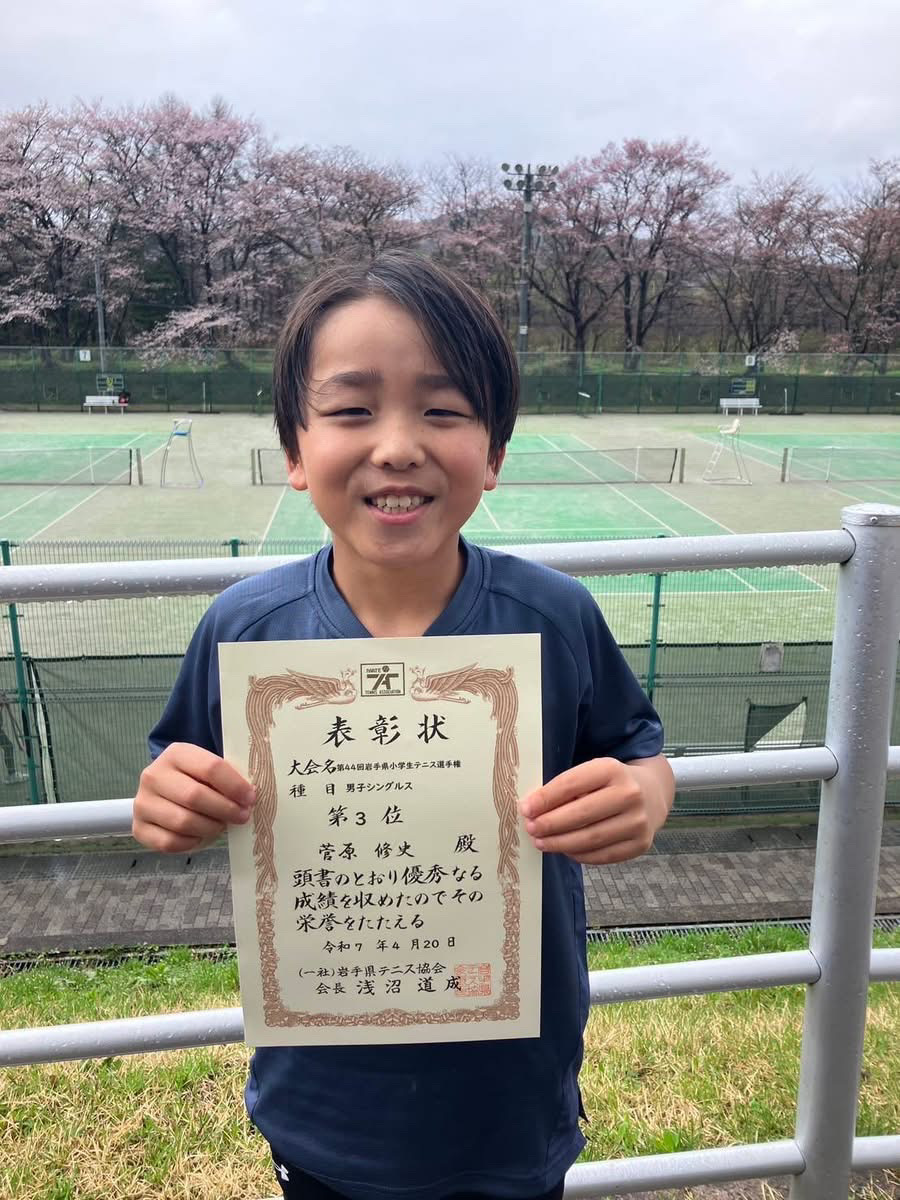 IWATE
TENNIS ASSOCIATION
表彰状
大会名 第44回岩手県小学生テニス選手権
種目 男子シングルス
第3位
菅原 修史 殿
頭書のとおり優秀なる
成績を収めたのでその
栄誉をたたえる
令和7年4月20日
(一社)岩手県テニス協会
会長 浅沼 道成
7